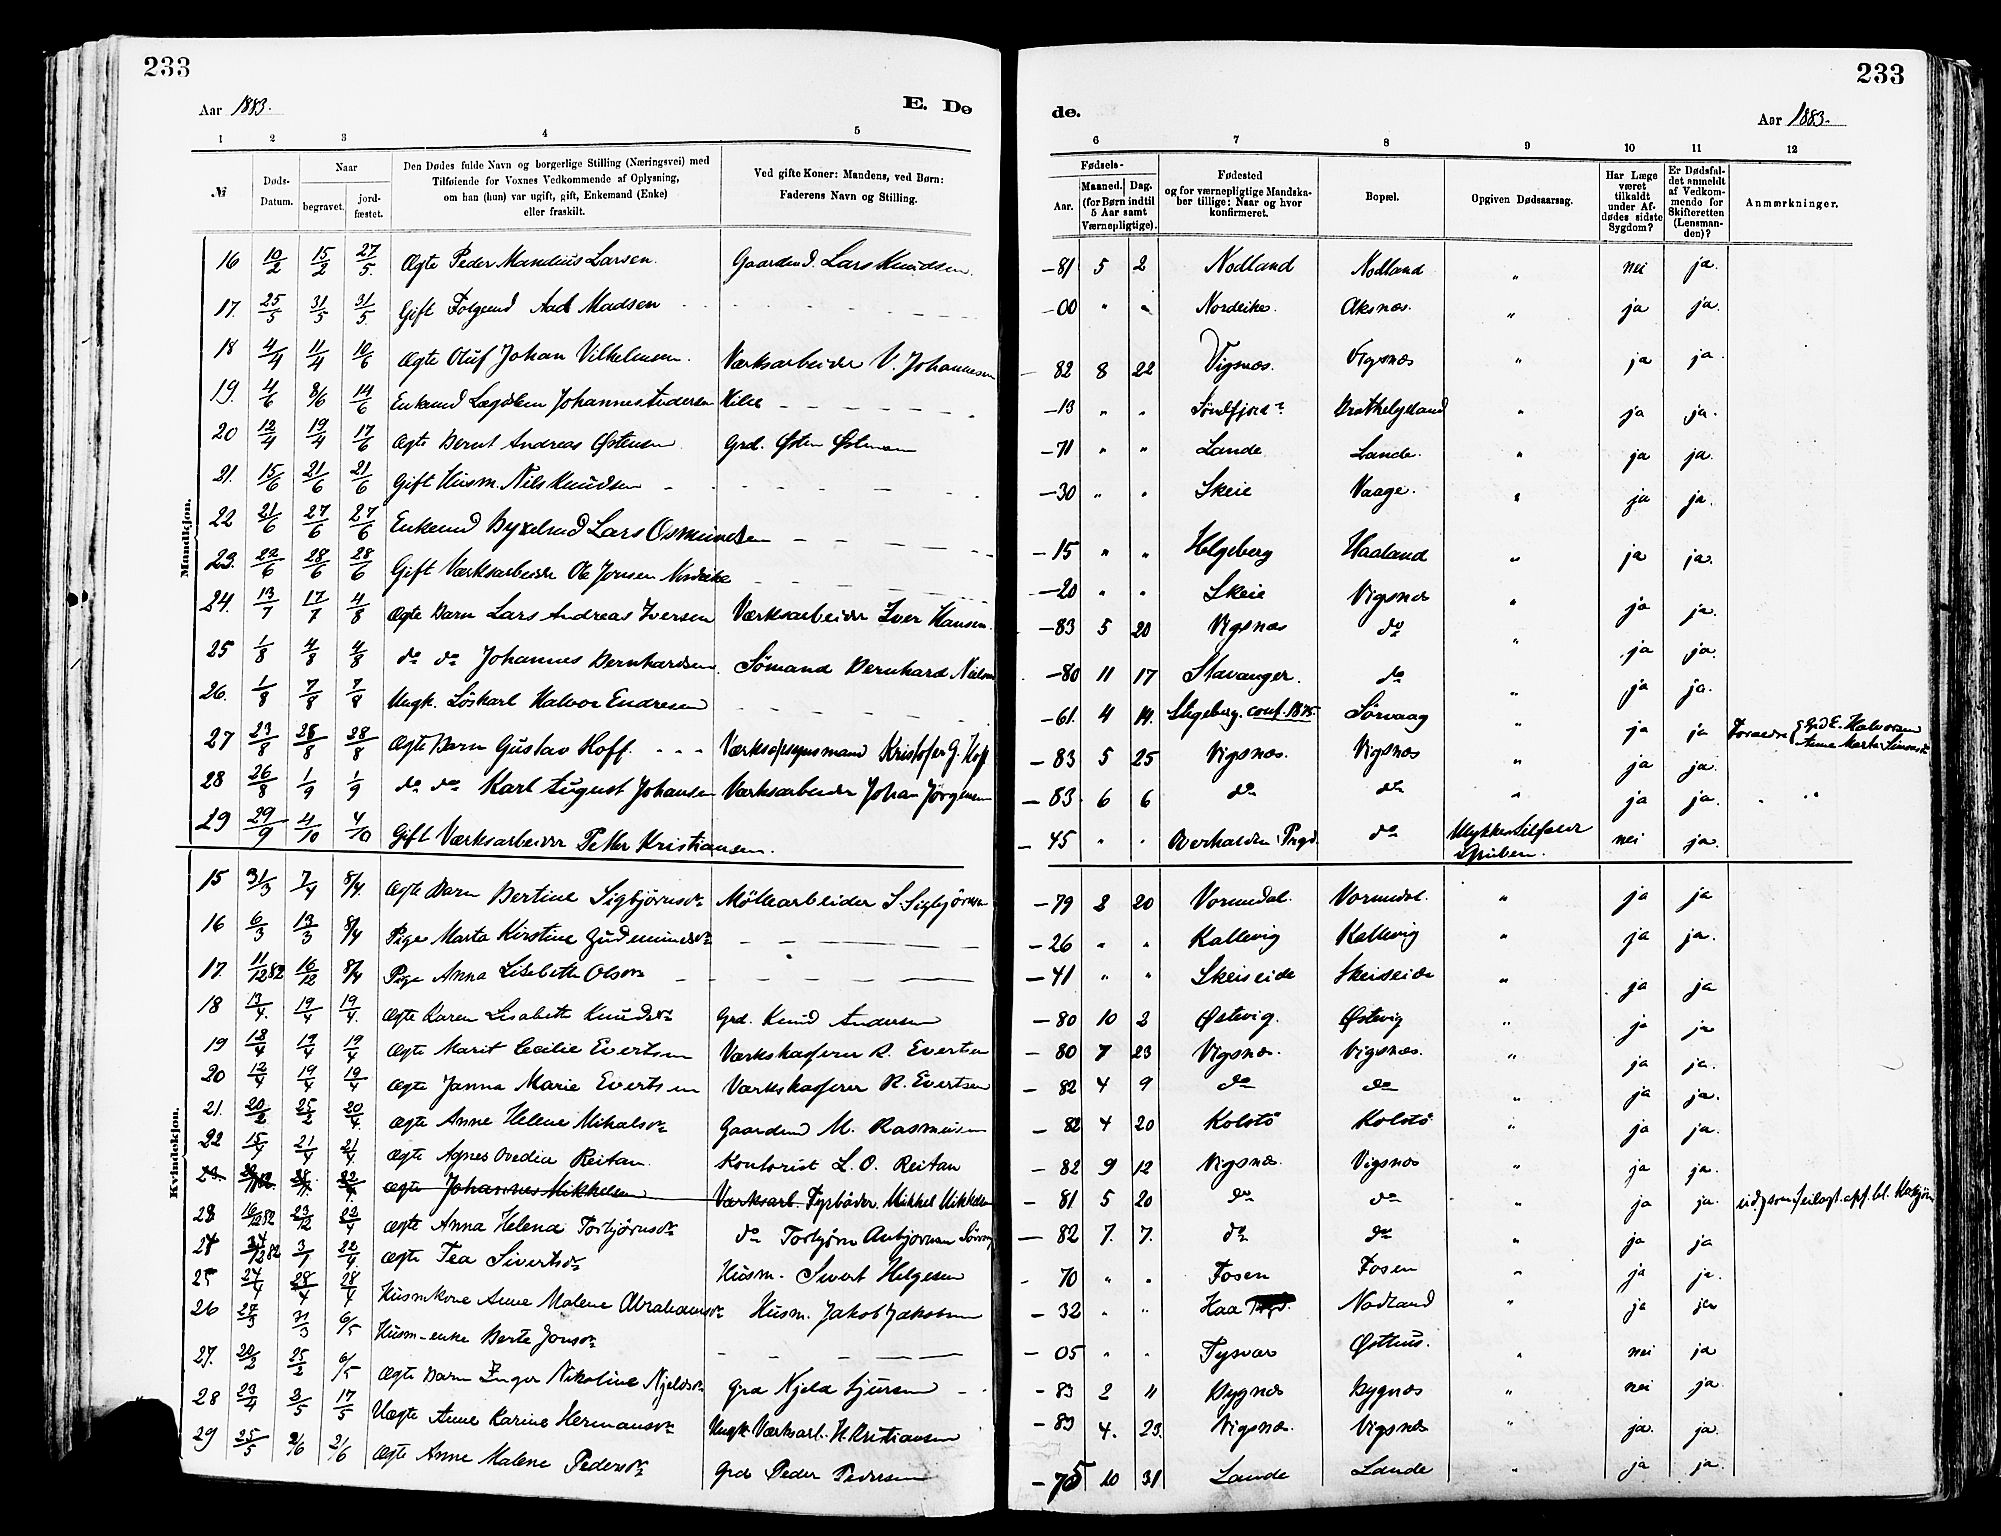 233
233
Aar 1883.
E. Dø
de.
Aar 1883.
1 2 3 4 5 6 7 8 9 10 11 12
№
Døds-Datum.
Naar
begravet.
jord-fæstet.
Den Dødes fulde Navn og borgerlige Stilling (Næringsvei) med
Tilføiende for Voxnes Vedkommende af Oplysning,
om han (hun) var ugift, gift, Enkemand (Enke)
eller fraskilt.
Ved gifte Koner: Mandens, ved Børn:
Faderens Navn og Stilling.
Fødsels-
Aar.
Maaned. Dag.
(for Børn indtil
5 Aar samt
Værnepligtige).
Fødested
og for værnepligtige Mandska-
ber tillige: Naar og hvor
konfirmeret.
Bopæl.
Opgiven Dødsaarsag.
Har Læge
været
tilkaldt
under Af-
dødes sidste
Sygdom?
Er Dødsfal-
det anmeldt
af Vedkom-
mende for
Skifteretten
(Lensman-
den)?
Anmærkninger.
Mandkjøn.
16 10/2 15/2 27/5 Ægte Peder Mandius Larsen Gaardmd. Lars Knudsen -81 5 2 Nodland Nodland " nei ja.
17. 25/5 31/5 31/5 Gift Folgemd Aad Madsen -00 " " Nordeike. Aksnæs. " ja ja.
18 4/4 11/4 10/6 Ægte Oluf Johan Vilhelmsen. Værksarbeider V. Johannesen 82 8 22 Vigsnæs. Vigsnæs " ja ja.
19. 4/6 8/6 14/6 Enkemd Lægdslem Johannes Andersen -13 " " Søndfjord " ja ja.
20 12/4 19/4 17/6 Ægte Bernt Andreas Østensen Grd. Østen Østensen -71 " " Lande Lande. " ja ja.
21. 15/6 21/6 21/6 Gift Husm. Nils Knudsen -30 " " Skeie Vaage. " ja ja.
22 21/6 27/6 27/6 Enkemd Byxelmd Lars Osmundsen -15 " " Helgeberg Haaland " ja ja.
23. 22/6 28/6 28/6 Gift Værksarbeider Ole Jonsen Nordeike -20 " " Skeie Vigsnæs " ja ja.
24. 13/7 17/7 4/8 Ægte Barn Lars Andreas Iversen Værksarbeider Iver Hansen. -83 5 20 Vigsnæs do " ja ja.
25 1/8 4/8 4/8 do do Johannes Bernhardsen Sømand Bernhard Nielsen -80 11 17 Stavanger. do " ja ja.
26. 1/8 7/8 7/8 Ungk. Løskarl Halvor Endresen -61. 4 14. conf. 1875. Sørvaag " ja ja Forældre Halvorsen
27 23/8 28/8 28/8 Ægte Barn Gustav Hoff. Værksopsynsmand Kristofer G. Hoff -83 5 25 Vigsnæs. Vigsnæs " ja ja.
28 26/8 1/9 1/9 do do Karl August Johansen Værksarbeider Johan Jørgensen -83. 6 6 do do " ja ja.
29 29/9 4/10 4/10 Gift Værksarbeider Petter Kristiansen. -45 " " Overhalden Prgd. do Ulykkestilfælde Gruben. nei ja.
Kvindekjøn.
15 31/3 7/4 8/4. Ægte Barn Bertine Sigbjørnsdr Møllearbeider S. Sigbjørnsen -79 2 20 Vormedal. Vormedal. " ja ja
16 6/3 13/3 8/4 Pige Marta Kirstine Gudmundsdr -26 " " Kallevig Kallevig " ja ja.
17. 11/12 82 16/12 8/4 Pige Anna Lisebeth Olsdr -41 " " Skeiseide Skeiseide " ja ja
18 13/4. 19/4 19/4. Ægte Karen Lisabeth Knudsdr Grd. Knud Andersen -80 10 2 Østevig. Østevig " ja ja
19 18/4 19/4 19/4. Ægte Marit Cecilie Evertsen Værkskasserer R. Evertsen -80 7 23 Vigsnæs. Vigsnæs. " ja ja.
20 12/4 19/4 19/4 Ægte Janna Marie Evertsen Værkskasserer R. Evertsen -82 4 9 do do " ja ja.
21. 20/2 25/2 20/4. Ægte Anne Helene Mikalsdr Gaardmd M. Rasmussen -82 4 20 Kolstø Kolstø " ja ja.
22 15/4 21/4 21/4. Ægte Agnes Ovedia Reitan. Kontorist L. O. Reitan -82 9 12 Vigsnæs. Vigsnæs " ja ja.
23. Ægte Johannes Mikkelsen Værksarb. Fyrbøder Mikkel Mikkelsen -81 5 20 do do " ja ja.
23. 16/12 82 23/12 22/4 Ægte Anna Helena Torbjørnsdr do Torbjørn -82 7. 7. do do " ja ja
24 3/1 22/4. Ægte Tea Sivertsdr Husm. Sivert Helgesen 70 " " Fosen Fosen " ja ja.
25 24/4 28/4 28/4 Husmkone Anne Malene Abrahamsdr Husm. Jakob Jakobsen -32 " " Haa Nodland " ja ja
26 27/3 31/3 6/5 Husm-enke Berte Jonsdr -05 " " Tysvær Østhus. " nei ja
27. 20/2 25/2 6/5 Ægte Barn Inger Nikoline Njeldsdr Grd Njeld Sjursen -83 2 11 Bygnæs Bygnæs. " nei ja.
28 23/4 2/5 17/5 Uægte Anne Karine Hermansdr Ungk. Værksarb. H. Kristiansen -83 4. 23. Vigsnæs. Vigsnæs " ja. ja.
29 25/5 2/6 2/6 Ægte Anne Malene Pedersdr Grd Peder Pedersen -75 10 31 Lande Lande " ja ja.